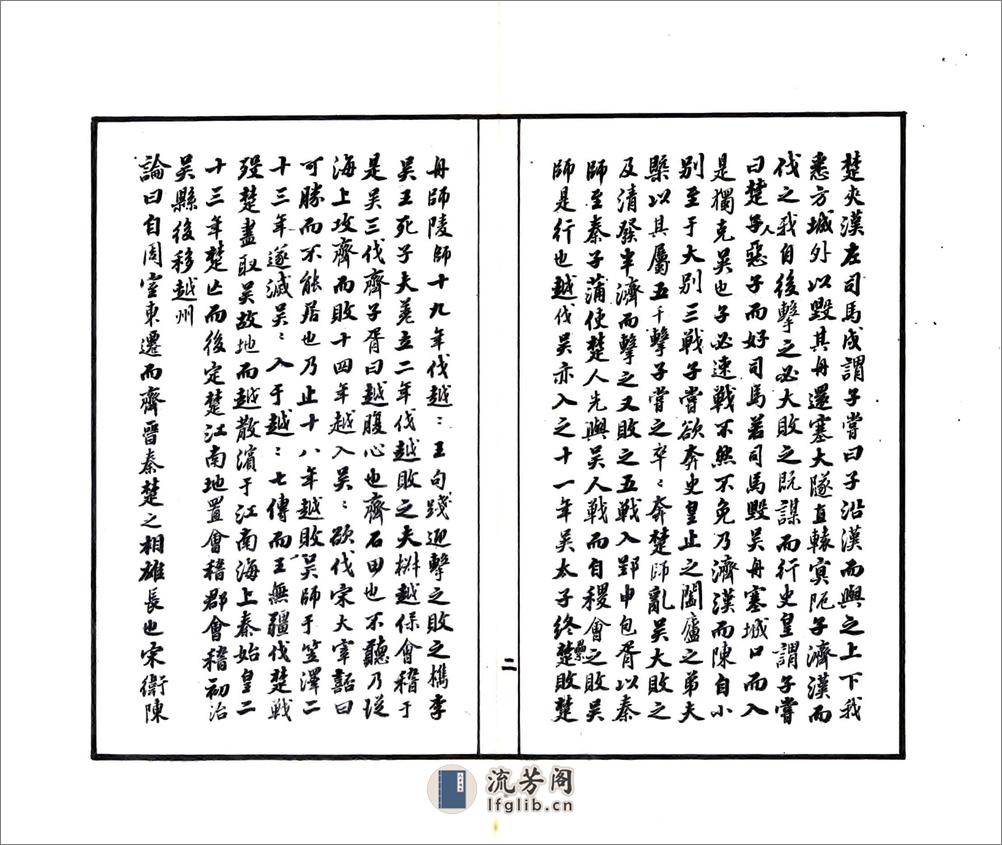 楚夾漢左司馬戌謂子嘗曰子沿漢而與之上下我
悉方城外以毀其舟還塞大隧直轅冥阨子濟漢而
伐之我自後擊之必大敗之既謀而行史皇謂子嘗
曰楚人惡子而好司馬若司馬毀吳舟塞城口而入
是獨克吳也子必速戰不然不免乃濟漢而陳自小
別至于大別三戰子嘗欲奔史皇止之闔廬之弟夫
槩以其屬五千擊子嘗之卒〻奔楚師亂吳大敗之
及清發半濟而擊之又敗之五戰入郢申包胥以秦
師至秦子蒲使楚人先與吳人戰而自稷會之敗吳
師是行也越伐吳亦入之十一年吳太子終纍敗楚
二
舟師陵師十九年伐越〻王句踐迎擊之敗之檇李
吳王死子夫差立二年伐越敗之夫椒越保會稽于
是吳三伐齊子胥曰越腹心也齊石田也不聽乃從
海上攻齊而敗十四年越入吳〻欲伐宋大宰嚭曰
可勝而不能居也乃止十八年越敗吳師于笠澤二
十三年遂滅吳〻入于越〻七傳而王無疆伐楚戰
歿楚盡取吳故地而越散濱于江南海上秦始皇二
十三年楚亡而後定楚江南地置會稽郡會稽初治
吳縣後移越州
論曰自周室東遷而齊晉秦楚之相雄長也宋衛陳
流芳阁
lfglib.cn